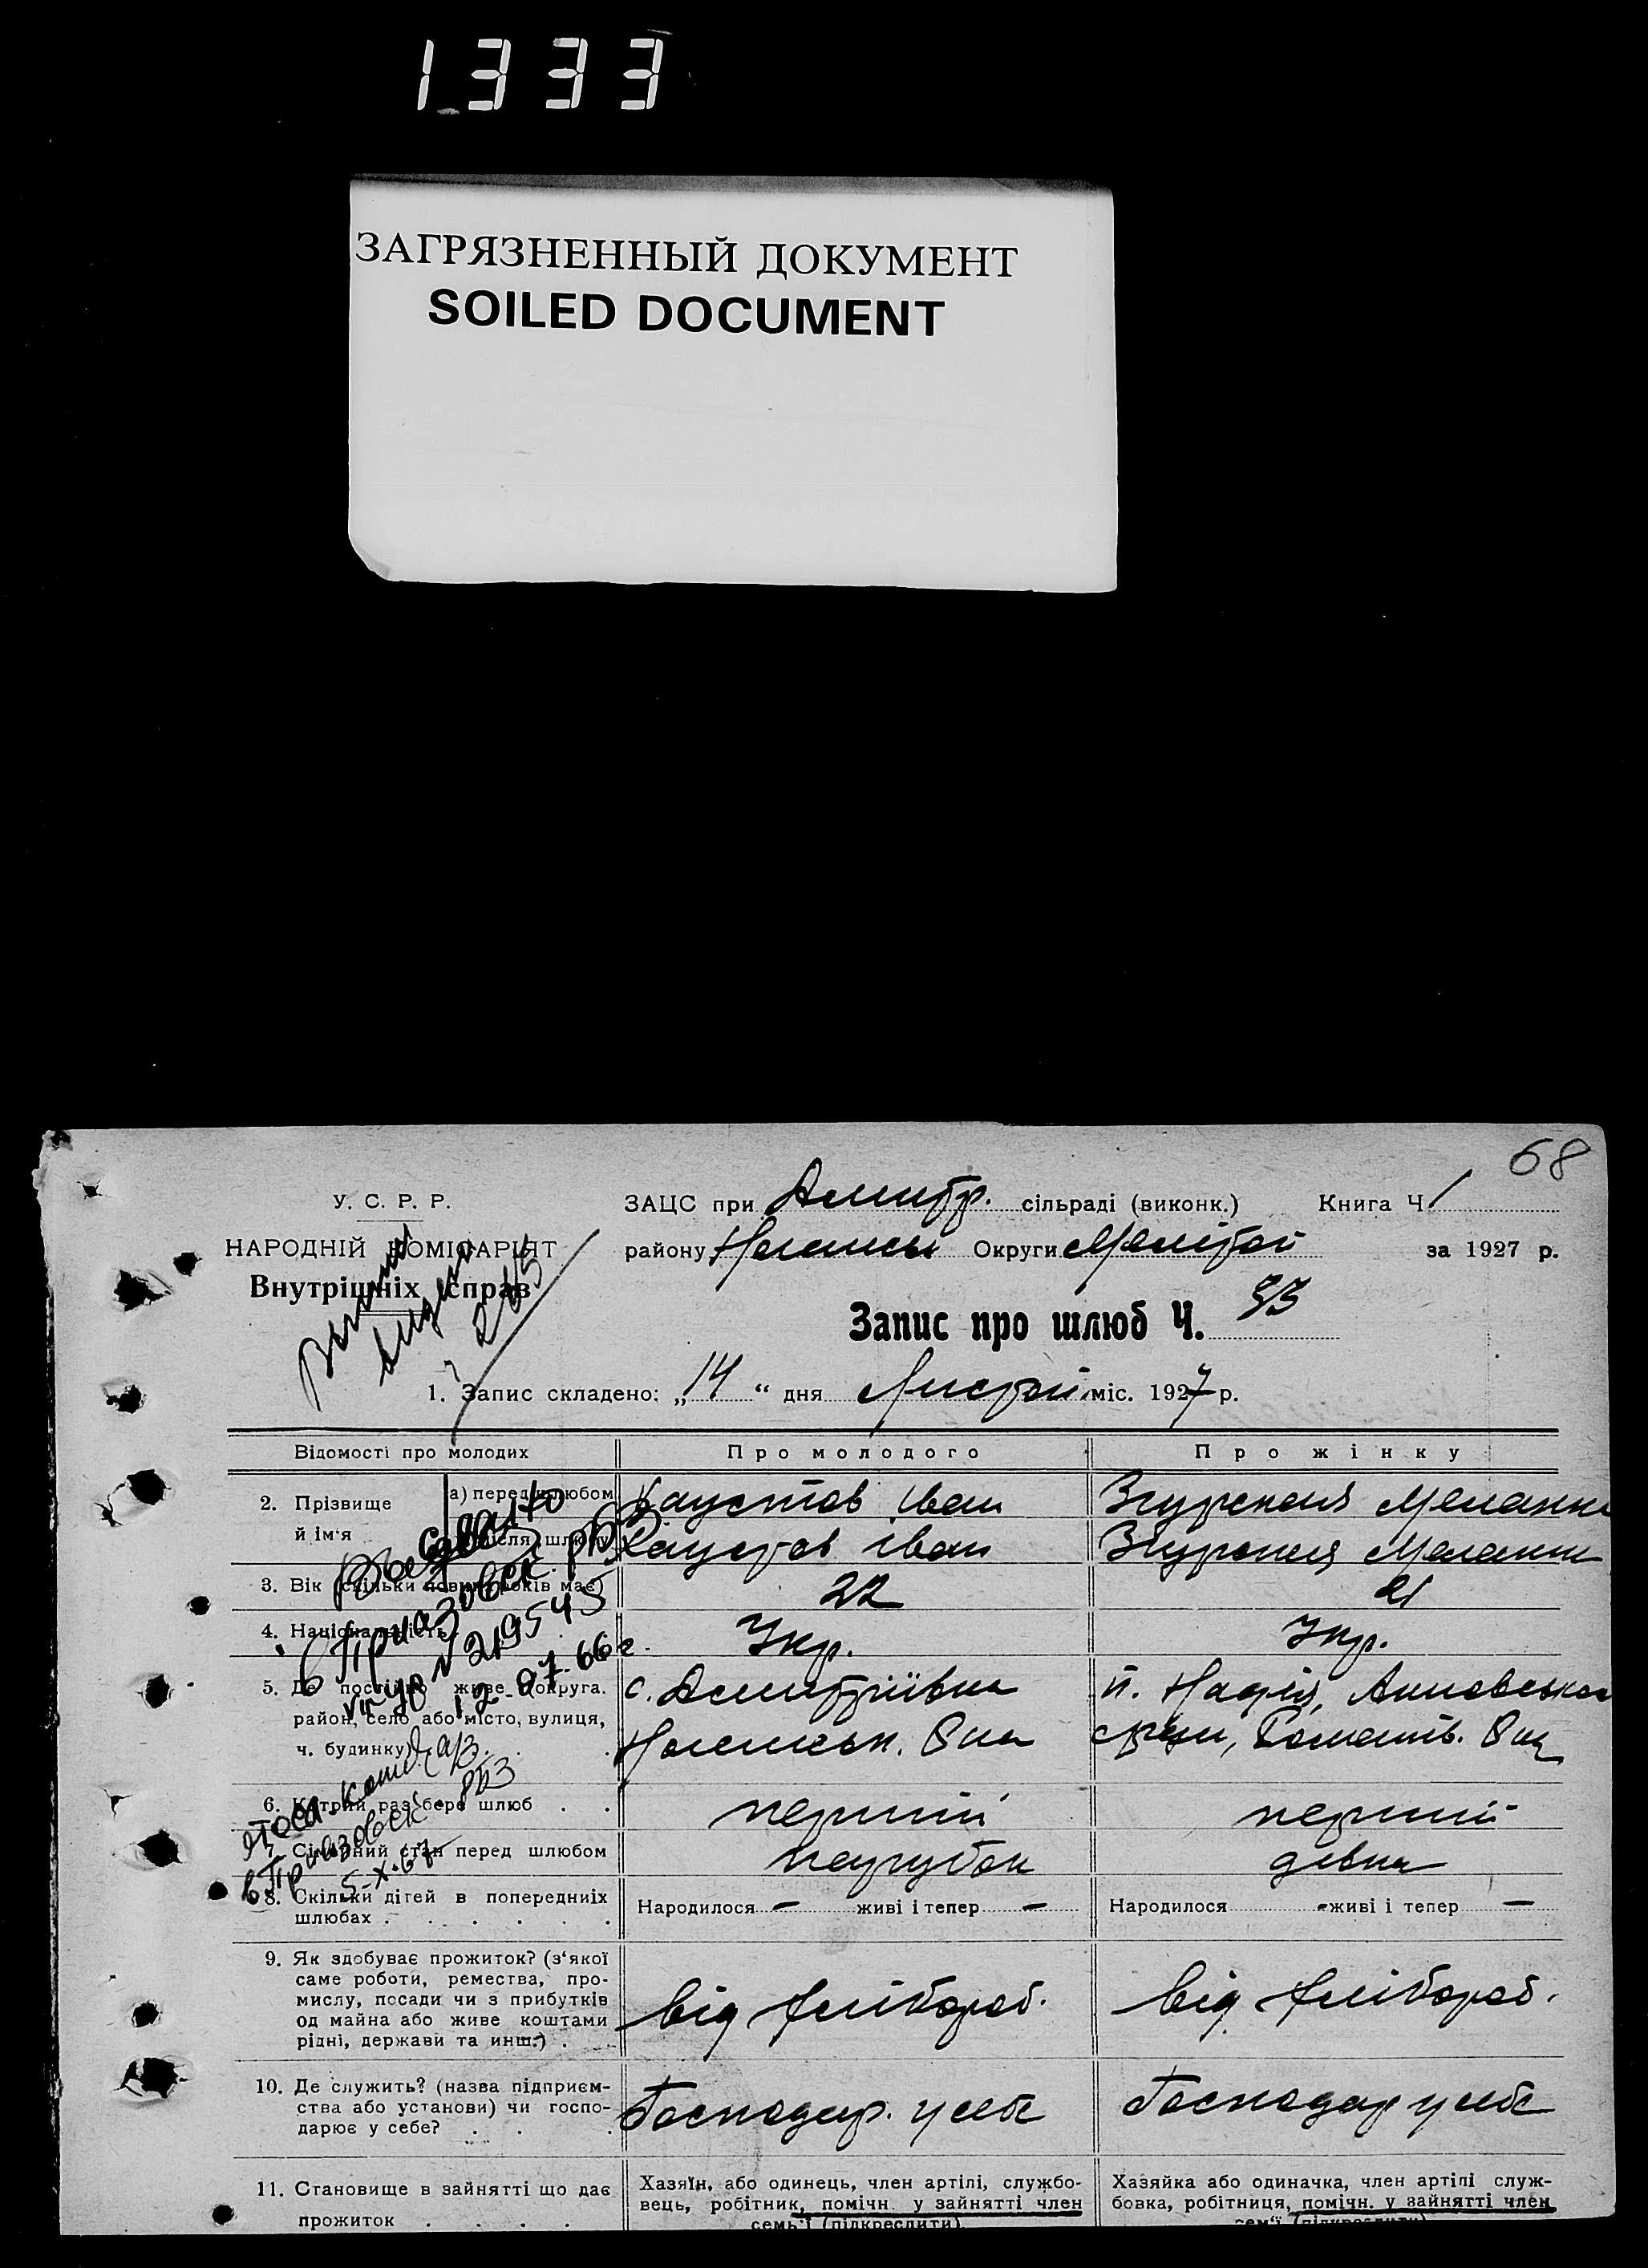 1333
ЗАГРЯЗНЕННЫЙ ДОКУМЕНТ
SOILED DOCUMENT
68
У. С. Р. Р.
НАРОДНІЙ КОМІСАРІЯТ
Внутрішніх справ
ЗАЦС при Дмитр. сільраді (виконк.) Книга Ч 1
району Округи Мелітоп за 1927 р.
Запис про шлюб Ч. 33
1. Запис складено: „14“ дня Листоп міс. 1927 р.
Відомості про молодих
Про молодого
Про жінку
2. Прізвище й ім'я
а) перед шлюбом
Хаустов Іван
Згурская Мелания
після шлюбу
Хаустов Іван
Мелания
3. Вік (скільки повних років має)
22
21
4. Національність
Укр.
Укр.
5. Де постійно живе (округа,
район, село або місто, вулиця,
ч. будинку)
с. Дмитріївка
п. Надія,
6. Котрий раз бере шлюб . .
перший
перший
7. Сімейний стан перед шлюбом
парубок
дівка
8. Скільки дітей в попередніх
шлюбах . . . . . .
Народилося – живі і тепер –
Народилося – живі і тепер –
9. Як здобуває прожиток? (з'якої
саме роботи, ремества, про-
мислу, посади чи з прибутків
од майна або живе коштами
рідні, держави та инш.) . .
від хлібороб.
від хлібороб.
10. Де служить? (назва підприєм-
ства або установи) чи госпо-
дарює у себе? . . .
Господар. у себе
Господар у себе
11. Становище в зайнятті що дає
прожиток . . . .
Хазяїн, або одинець, член артілі, службо-
вець, робітник, помічн. у зайнятті член
семь'ї (підкреслити)
Хазяйка або одиначка, член артілі служ-
бовка, робітниця, помічн. у зайнятті член
сем'ї (підкреслити)
в Приазовск.
№ 219545
12.07.66 г.
в Приазовск.
5-X-67